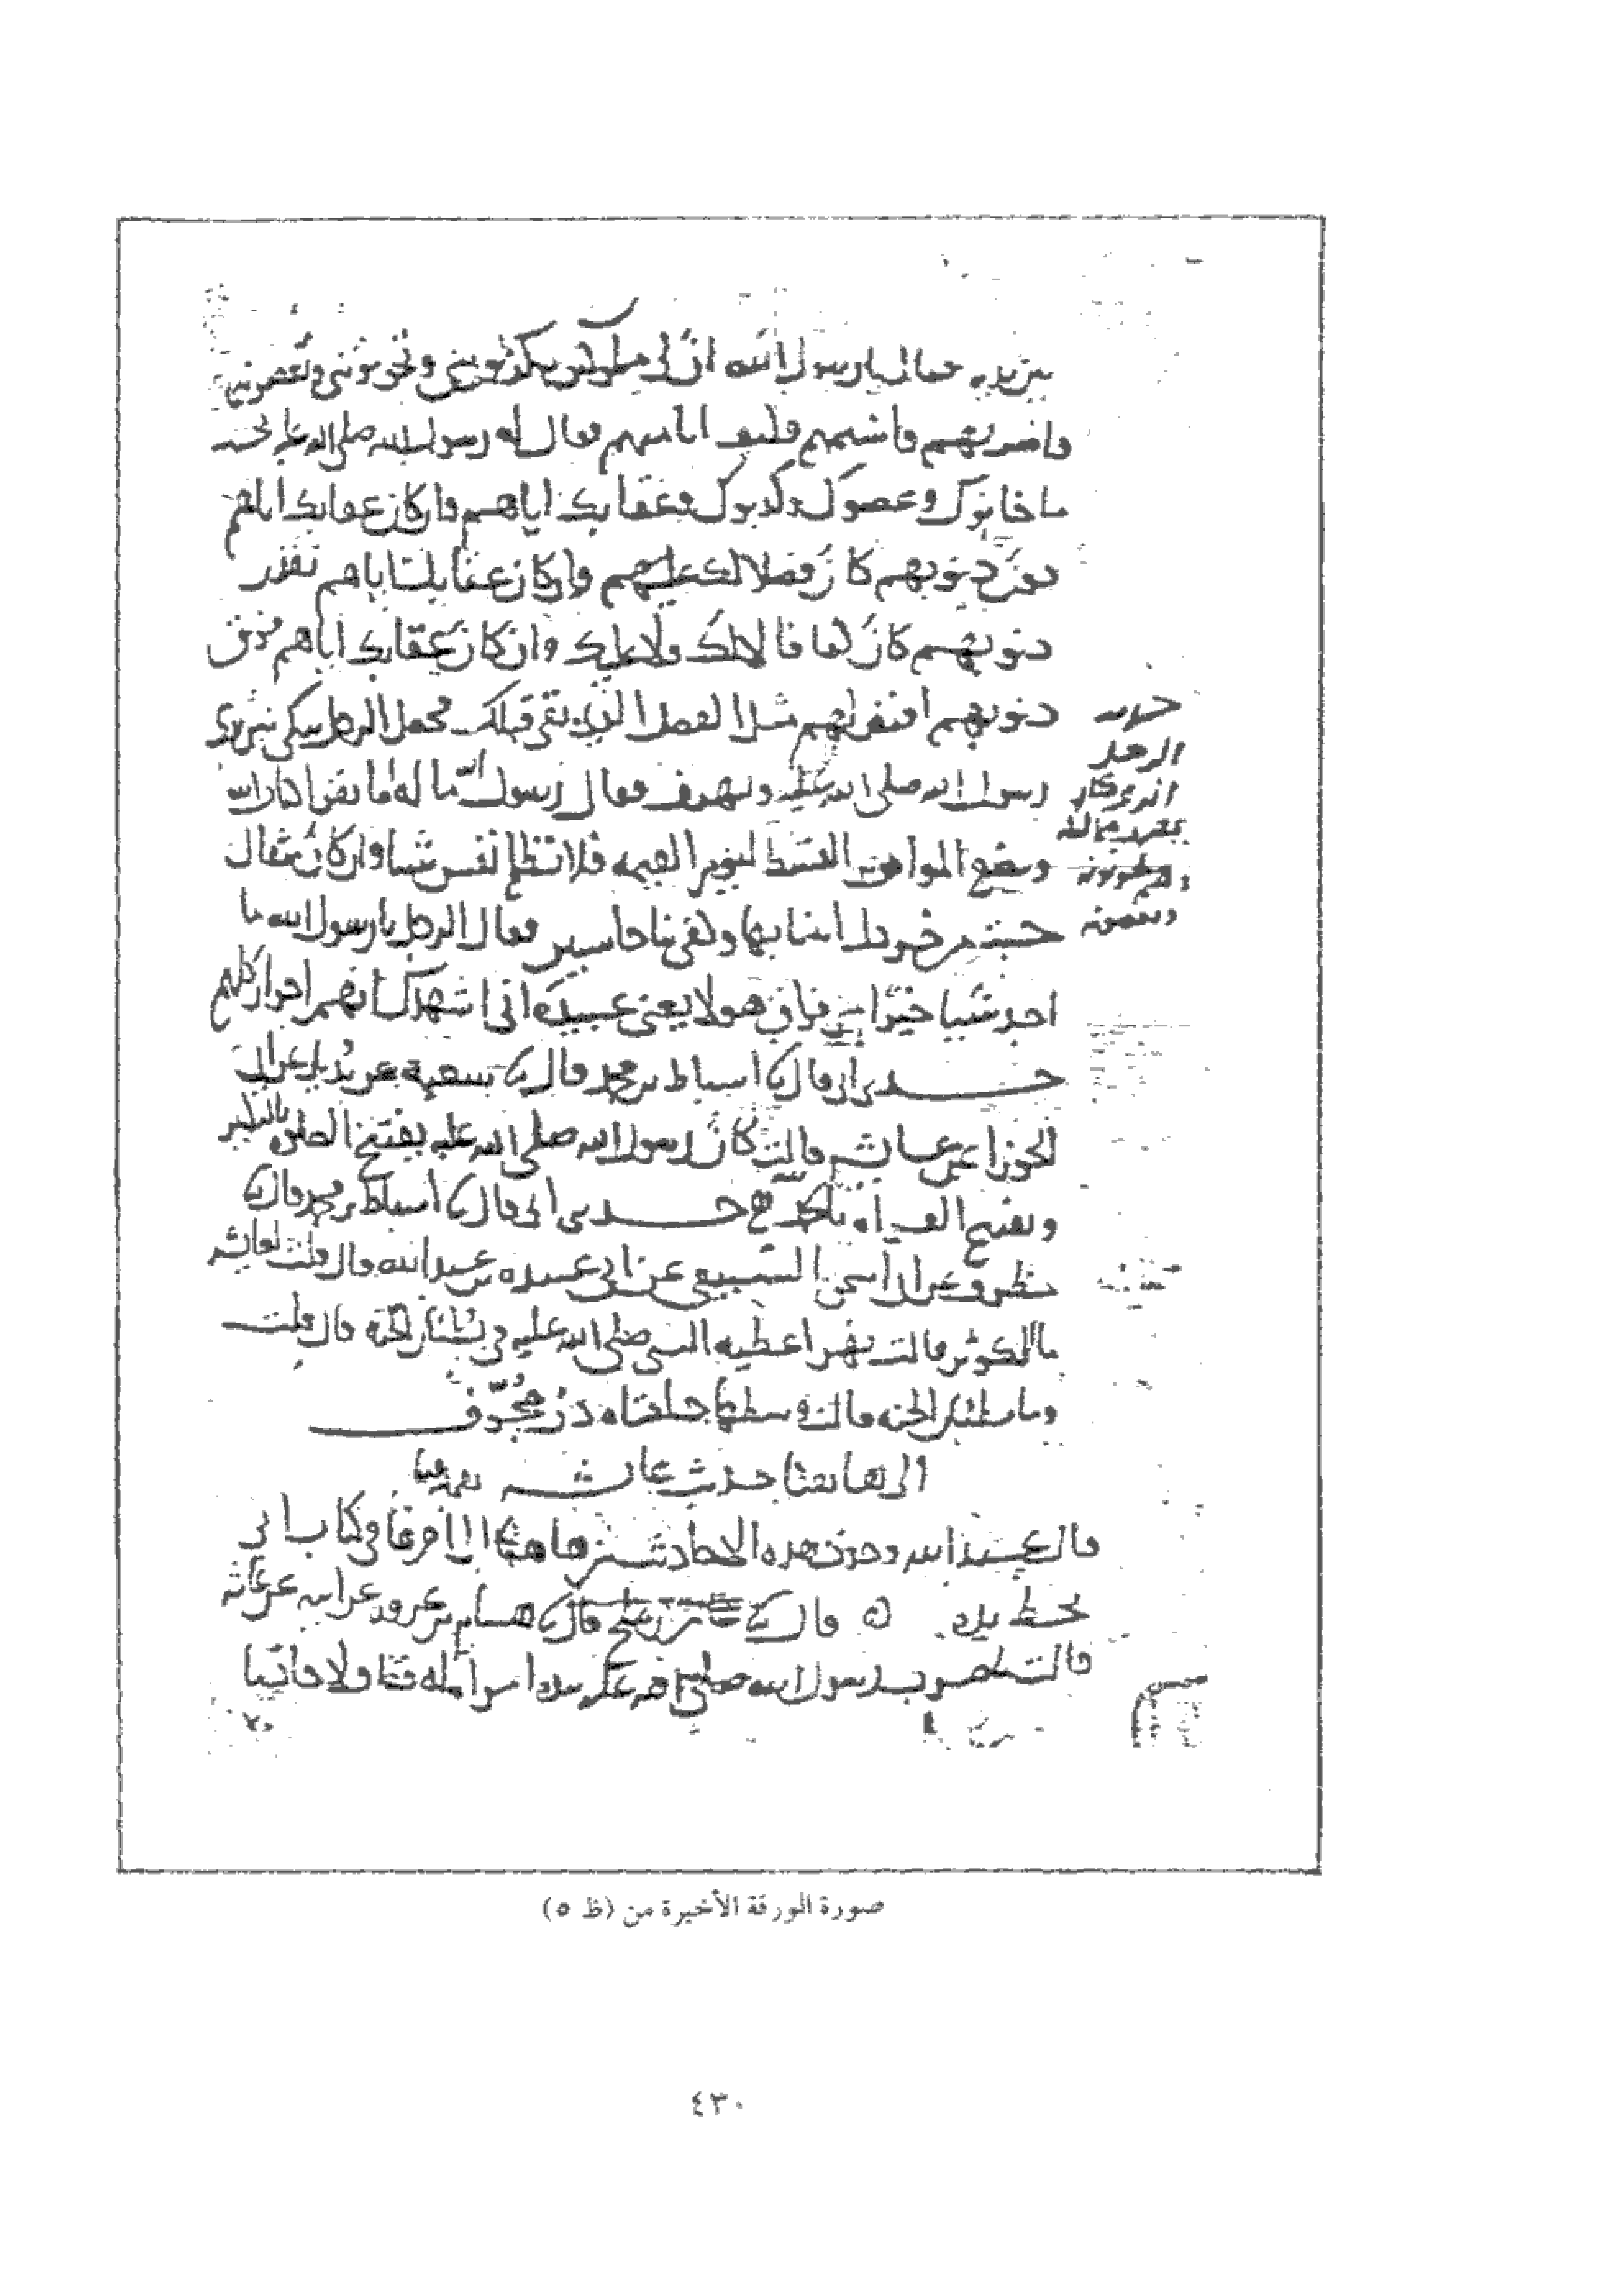 بين يديه فقال يا رسول الله ان لي مملوكين يكذبونني ويخونونني ويعصونني
واضربهم واشتمهم فكيف انا منهم فقال له رسول الله صلى الله عليه بحسب
ما خانوك وعصوك وكذبوك وعقابك اياهم فان كان عقابك اياهم
دون ذنوبهم كان فضلا لك عليهم وان كان عقابك اياهم بقدر
ذنوبهم كان كفافا لا لك ولا عليك وان كان عقابك اياهم فوق
ذنوبهم اقتص لهم منك الفضل الذي بقي قبلك فجعل الرجل يبكي بين يدي
رسول الله صلى الله عليه ويهتف فقال رسول الله ما له اما يقرا كتاب الله
ونضع الموازين القسط ليوم القيمة فلا تظلم نفس شيا وان كان مثقال
حبة من خردل اتينا بها وكفى بنا حاسبين فقال الرجل يا رسول الله ما
اجد شيا خيرا من فراق هولا يعني عبيده اني اشهدك انهم احرار كلهم
حدثني ابي قال نا اسباط بن محمد قال نا سعيد عن بديل عن ابي
الجوزا عن عايشة قالت كان رسول الله صلى الله عليه يفتتح الصلوة بالتكبير
ويفتتح القراة بالحمد لله حدثني ابي قال نا اسباط بن محمد قال نا
مطرف عن ابي اسحق السبيعي عن ابي عبيدة بن عبد الله قال قلت لعايشة
ما الكوثر قالت نهر اعطيه النبي صلى الله عليه في بطنان الجنة قال قلت
وما بطنان الجنة قالت وسطها حافتاه در مجوف
الى هاهنا حديث عائشة
قال عبد الله وجدت هذه الاحاديث من هاهنا الى اخرها في كتاب ابي
بخط يده قال نا قال نا هشام بن عروة عن ابيه عن عائشة
قالت ما ضرب رسول الله صلى الله عليه بيده امراة له قط ولا خادما
حديث
الرجل
الذي كان
صورة الورقة الأخيرة من (ظ ٥)
٤٣٠